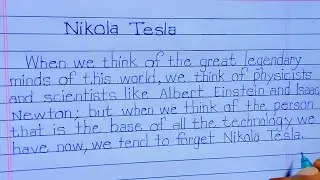 Nikola Tesla
When we think of the great legendary
minds of this world, we think of physicists
and scientists like Albert Einstein and Isaac
Newton; but when we think of the person
that is the base of all the technology we
have now, we tend to forget Nikola Tesla.